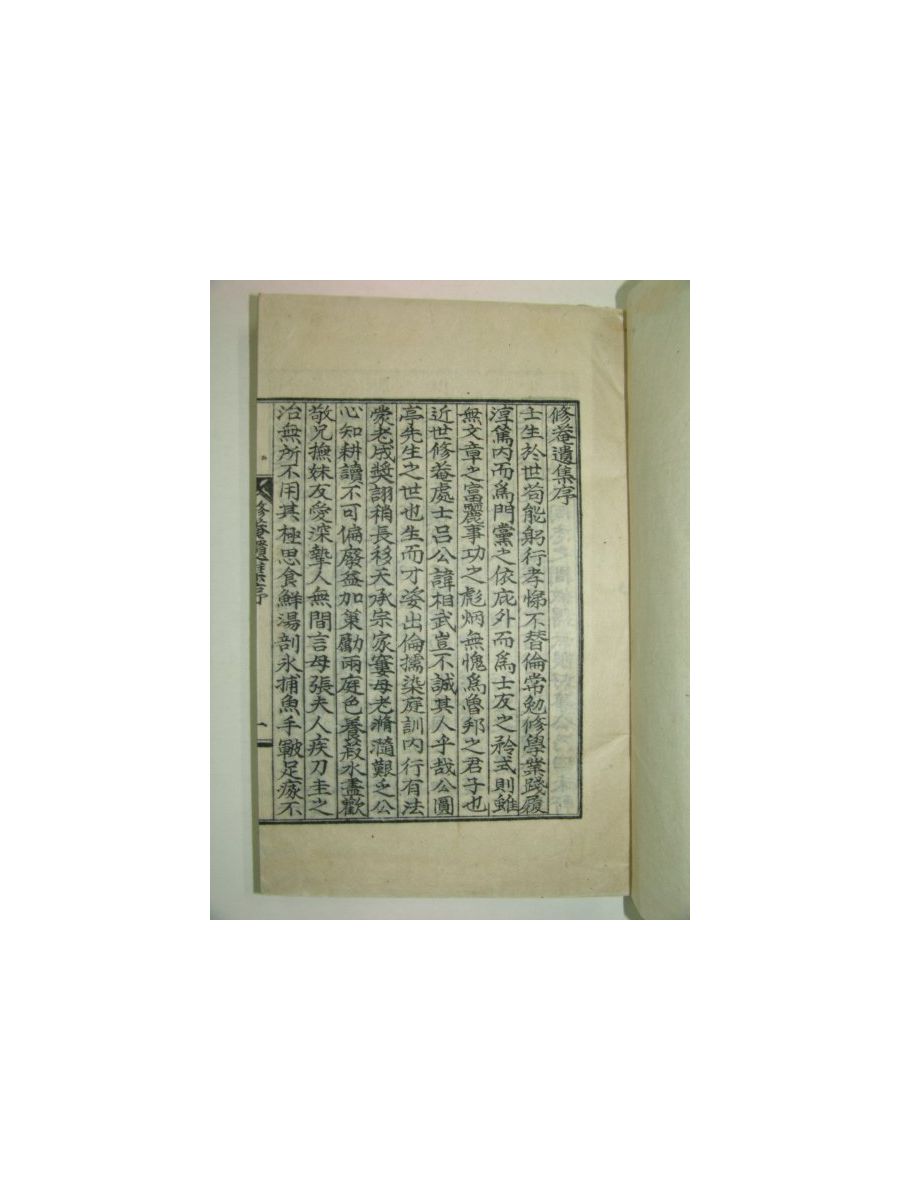 修菴遺集序
士生於世苟能躬行孝悌不替倫常勉修學業踐履
淳篤內而爲門黨之依庇外而爲士友之矜式則雖
無文章之富麗事功之彪炳無愧爲魯邦之君子也
近世修菴處士呂公諱相武豈不誠其人乎哉公圓
亭先生之世也生而才姿出倫擩染庭訓內行有法
蒙老成奬詡稍長移天承宗家窶母老滫瀡艱乏公
心知耕讀不可偏廢益加策勵兩庭色養菽水盡歡
敬兄撫妹友愛深摯人無間言母張夫人疾刀圭之
治無所不用其極思食鮮湯剖氷捕魚手皸足瘃不
修菴遺集序
一